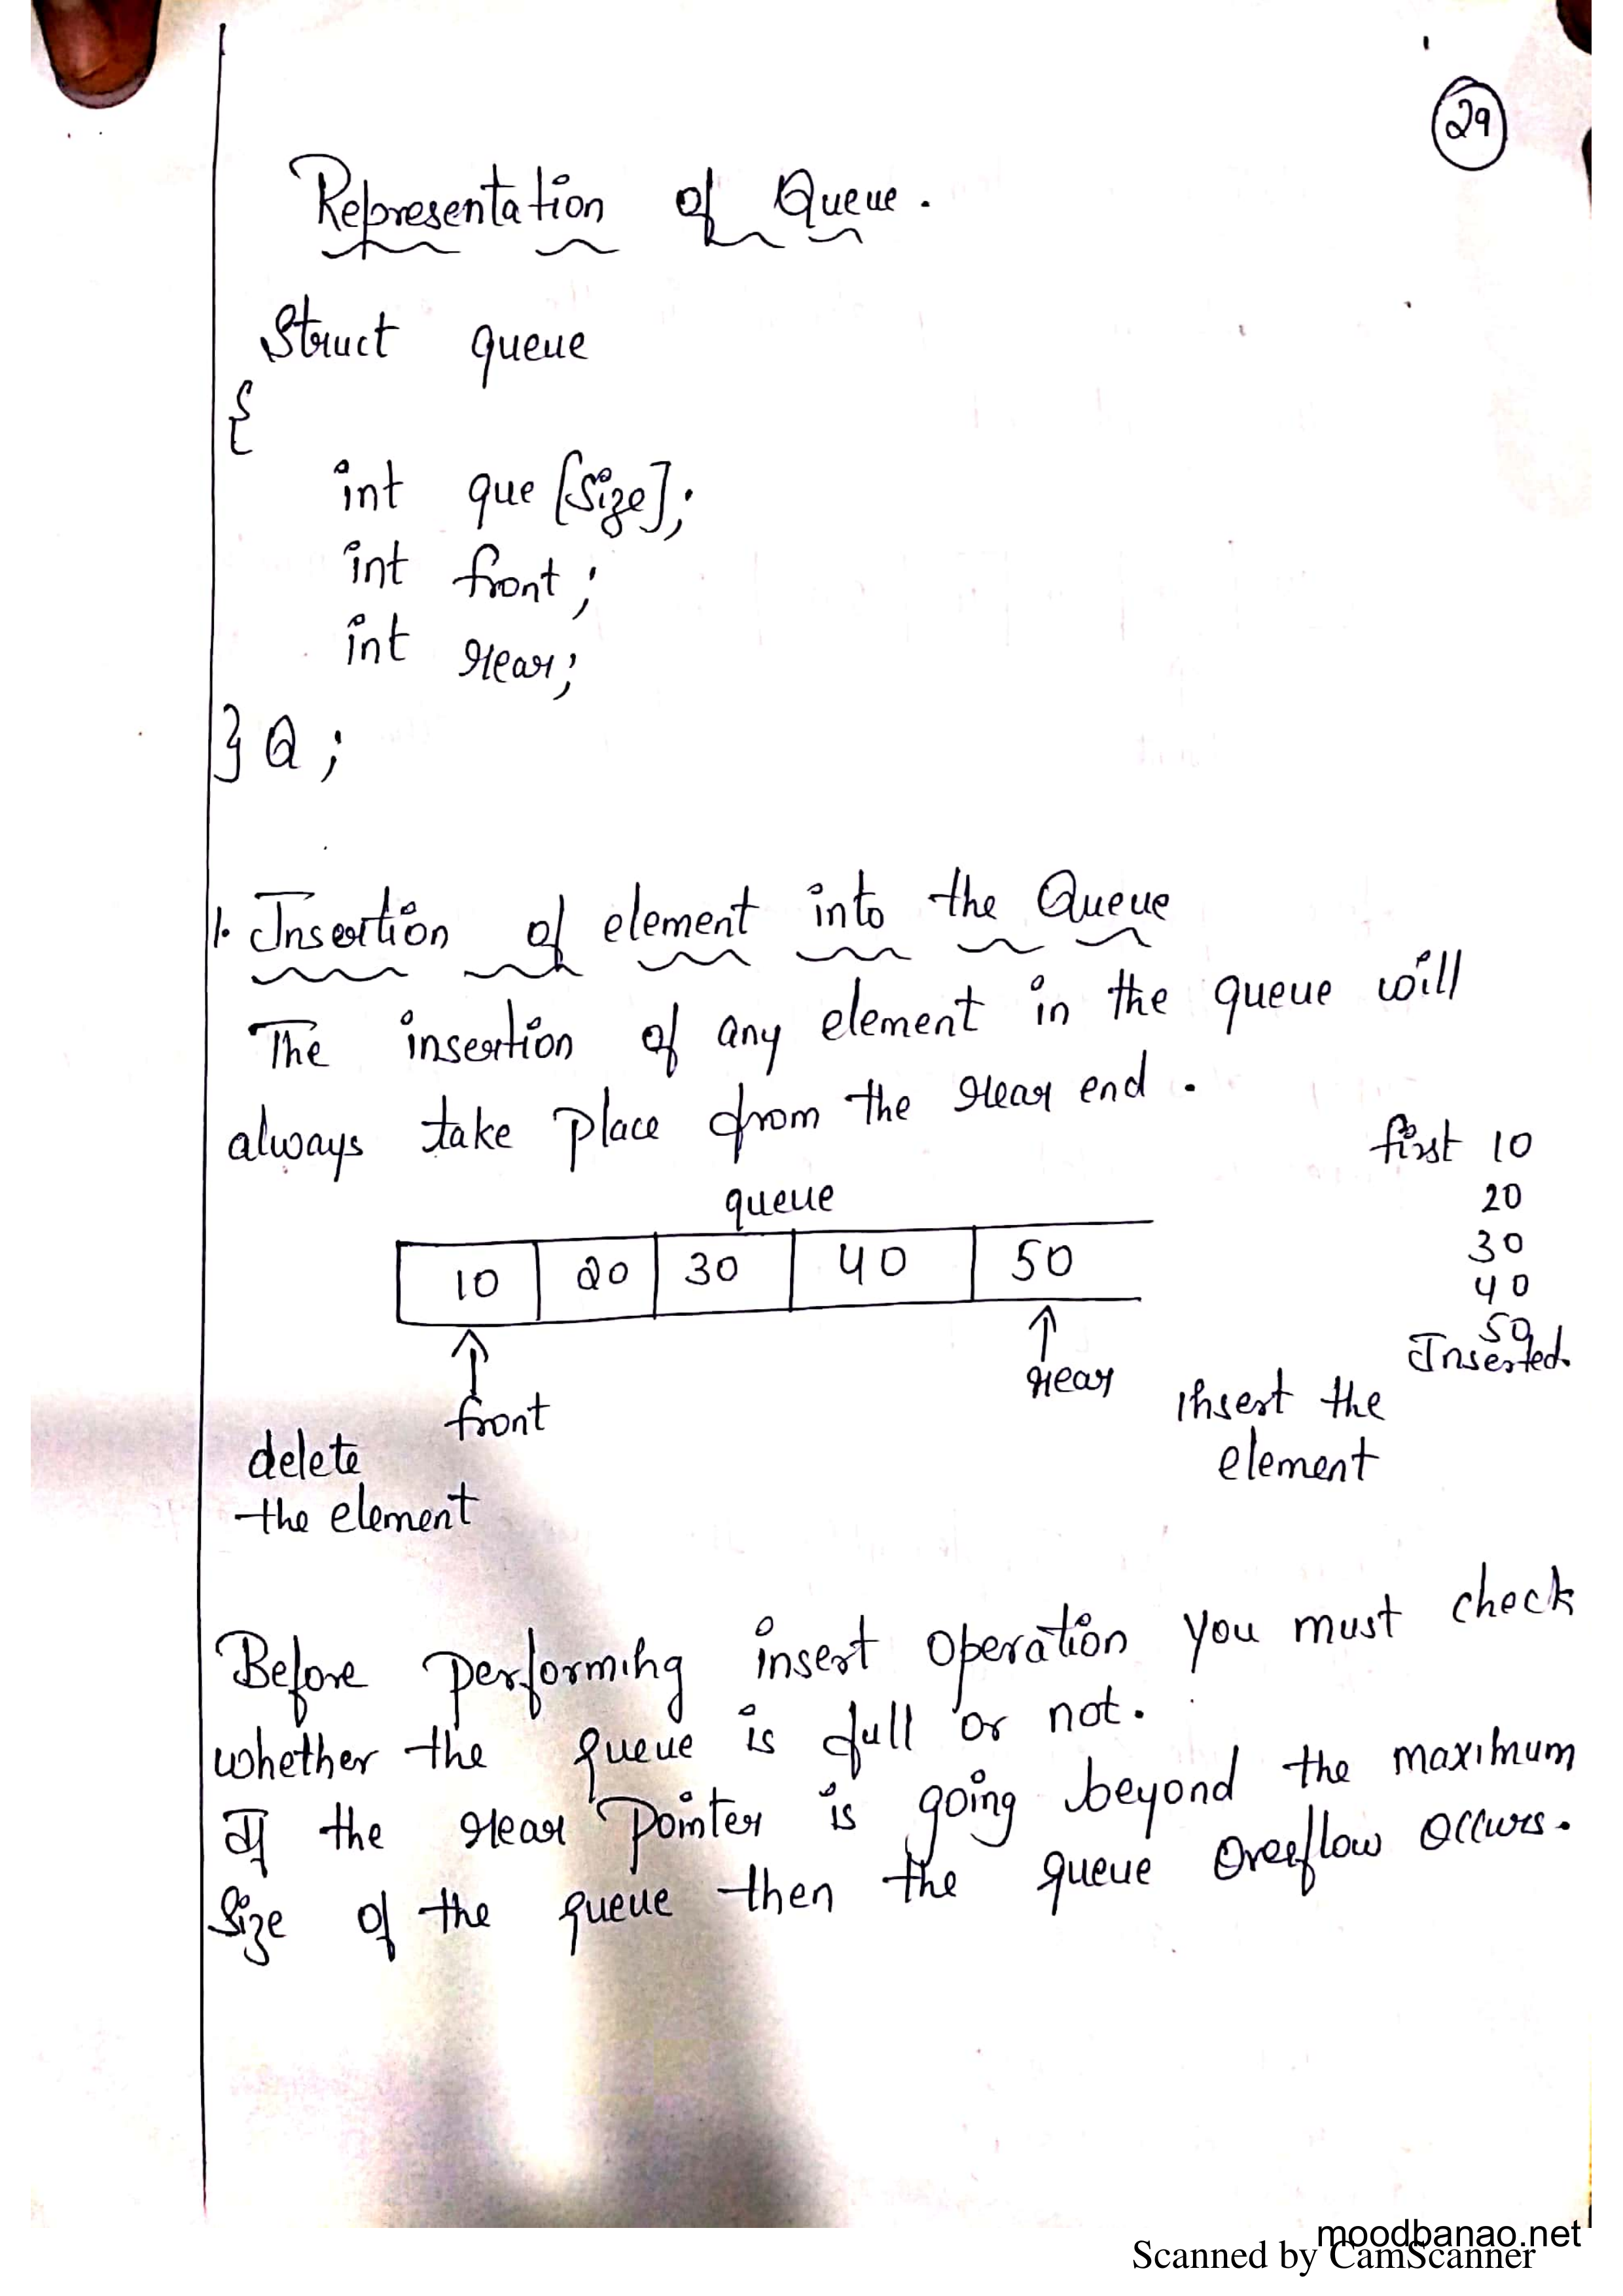 29
Representation of Queue.
Struct queue
{
int que [Size];
int front;
int rear;
} Q;
1. Insertion of element into the Queue
The insertion of any element in the queue will
always take place from the rear end.
first 10
20
30
40
50
Inserted.
queue
10 20 30 40 50
front
rear
insert the
element
delete
the element
Before performing insert operation you must check
whether the queue is full or not.
If the rear pointer is going beyond the maximum
Size of the queue then the queue overflow occurs.
moodbanao.net
Scanned by CamScanner